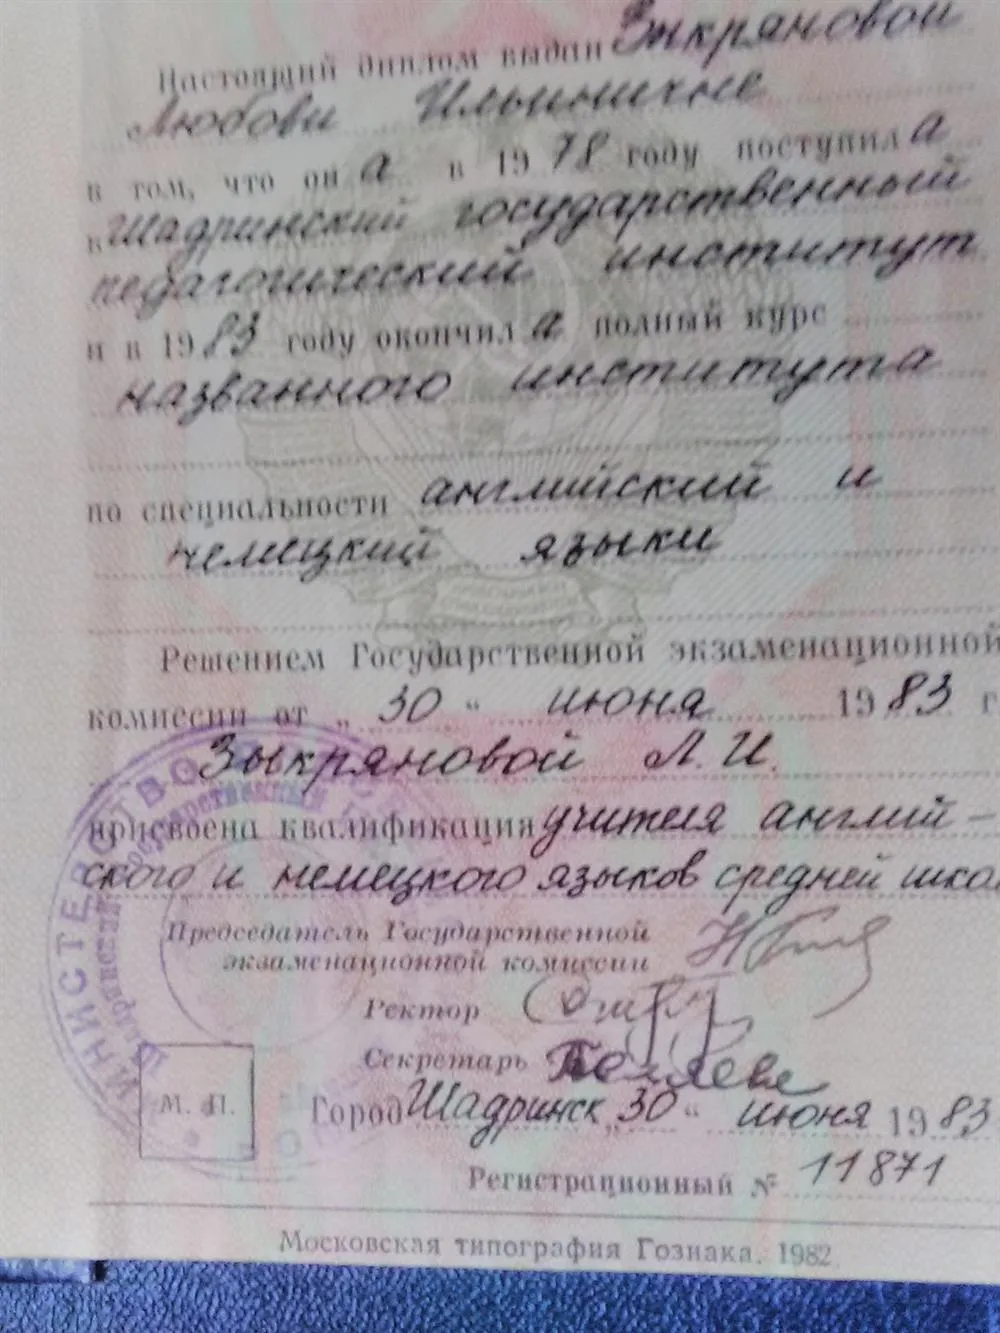 Настоящий диплом выдан Зыкряновой
Любови Ильиничне
в том, что он а в 1978 году поступил а
в Шадринский государственный
педагогический институт
и в 1983 году окончил а полный курс
названного института
по специальности английский и
немецкий языки
Решением Государственной экзаменационной
комиссии от „30“ июня 1983 г
Зыкряновой Л.И.
присвоена квалификация учителя англий-
ского и немецкого языков средней шко
Председатель Государственной
экзаменационной комиссии
Ректор
Секретарь
М. П.
Город Шадринск „30“ июня 1983
Регистрационный № 11871
Московская типография Гознака. 1982.
МИНИСТЕРСТВО
Шадринский государственный